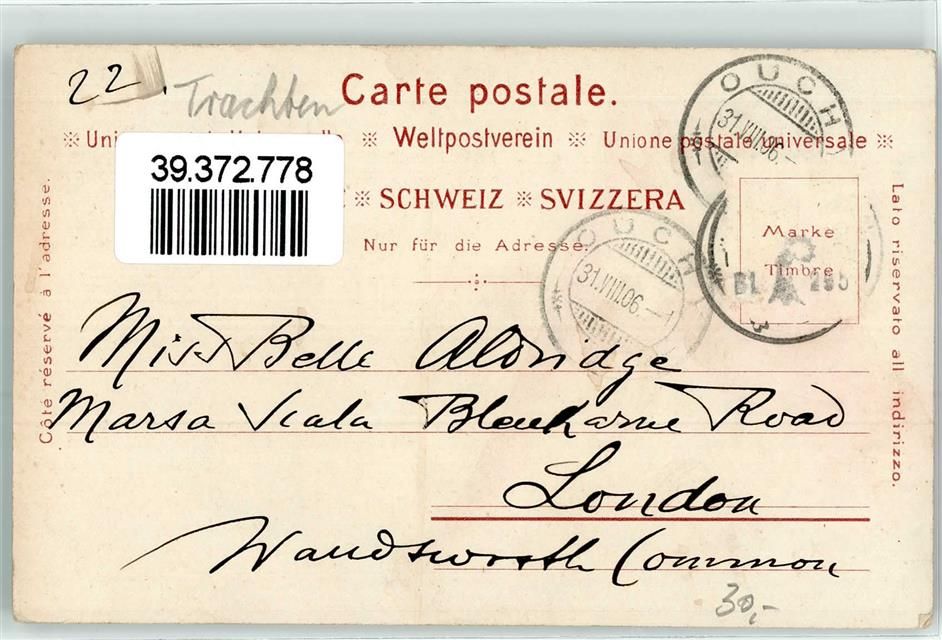 22.
Trachten
Carte postale.
Weltpostverein ※ Unione postale universale
39.372.778
SCHWEIZ ※ SVIZZERA
Nur für die Adresse.
OUCHY
31.VIII.06.
OUCHY
31.VIII.06.
Marke
Timbre
3
Côté réservé à l'adresse.
Lato riservato all indirizzo.
Miss Belle Aldridge
Marsa Scala Blenkarne Road
London
Wandsworth Common
30,-